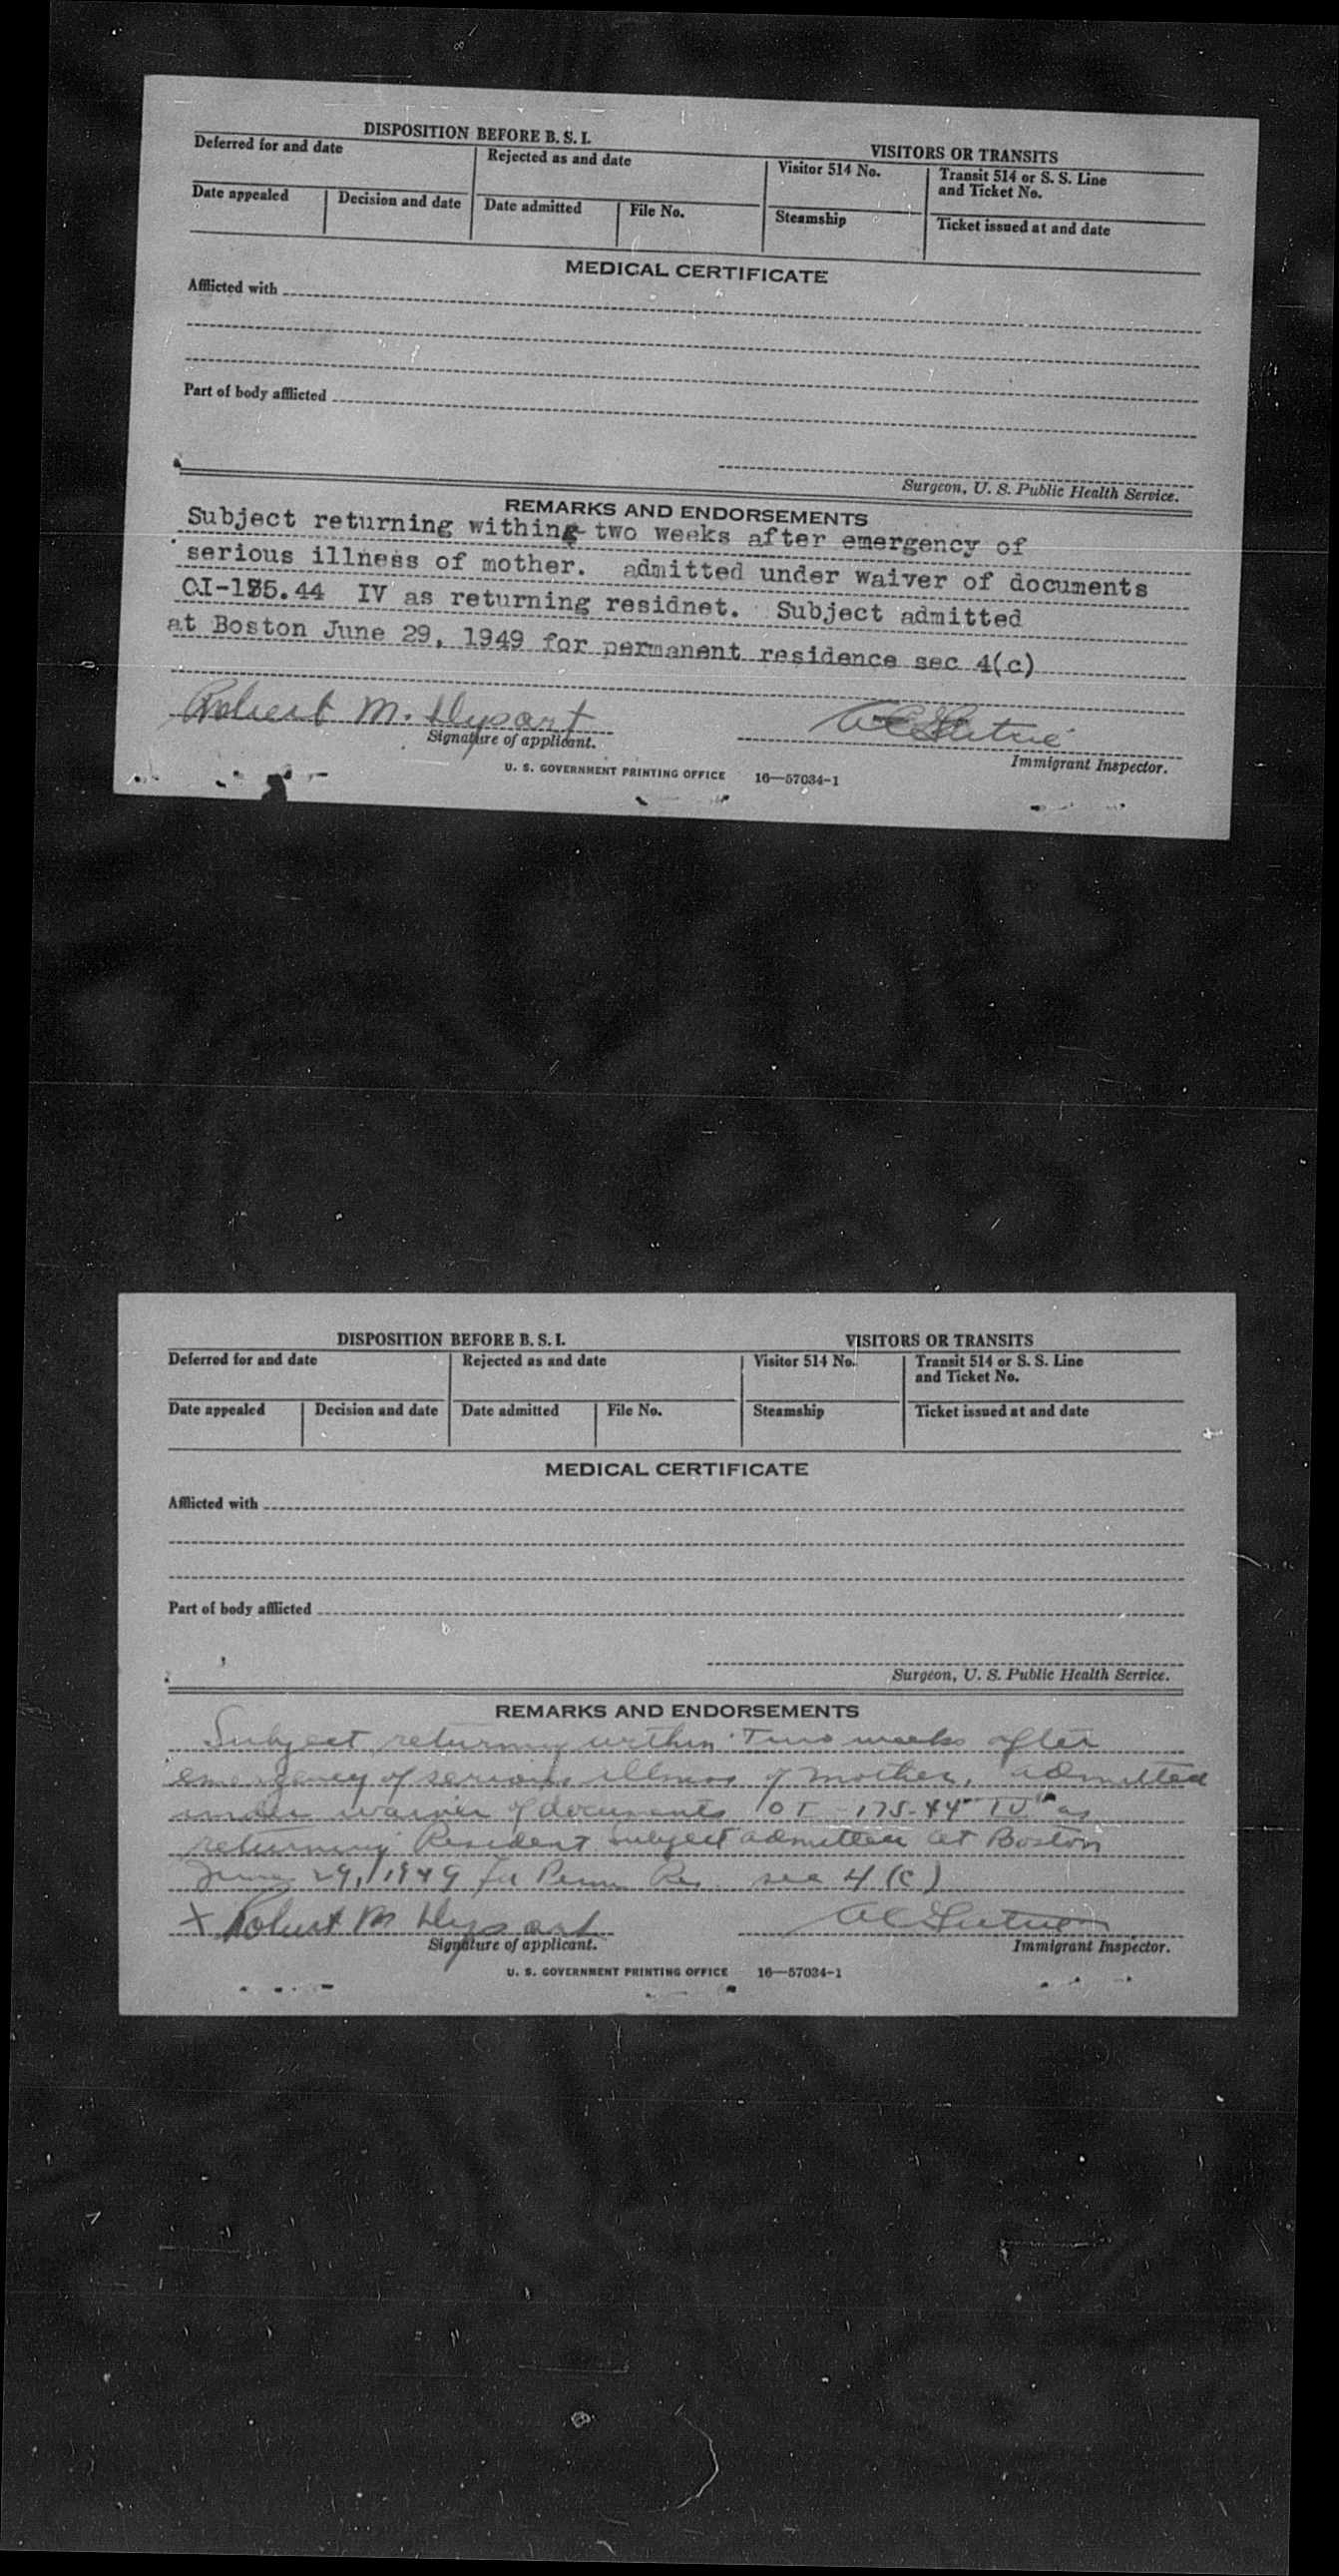 DISPOSITION BEFORE B. S. I.
VISITORS OR TRANSITS
Deferred for and date
Rejected as and date
Visitor 514 No.
Transit 514 or S. S. Line
and Ticket No.
Date appealed
Decision and date
Date admitted
File No.
Steamship
Ticket issued at and date
MEDICAL CERTIFICATE
Afflicted with
Part of body afflicted
Surgeon, U. S. Public Health Service.
REMARKS AND ENDORSEMENTS
Subject returning within two weeks after emergency of
serious illness of mother. admitted under waiver of documents
IV as returning residnet. Subject admitted
at Boston June 29, 1949 for permanent residence sec 4(c)
Robert M. Dysart
Signature of applicant.
Immigrant Inspector.
U. S. GOVERNMENT PRINTING OFFICE 16—57034-1
DISPOSITION BEFORE B. S. I.
VISITORS OR TRANSITS
Deferred for and date
Rejected as and date
Visitor 514 No.
Transit 514 or S. S. Line
and Ticket No.
Date appealed
Decision and date
Date admitted
File No.
Steamship
Ticket issued at and date
MEDICAL CERTIFICATE
Afflicted with
Part of body afflicted
Surgeon, U. S. Public Health Service.
REMARKS AND ENDORSEMENTS
Subject returning within two weeks after
emergency of serious illness of mother, admitted
under waiver of documents 175-44 IV as
returning Resident subject admitted at Boston
June 29, 1949 for Perm Res sec 4 (c)
x Robert M Dysart
Signature of applicant.
Immigrant Inspector.
U. S. GOVERNMENT PRINTING OFFICE 16—57034-1